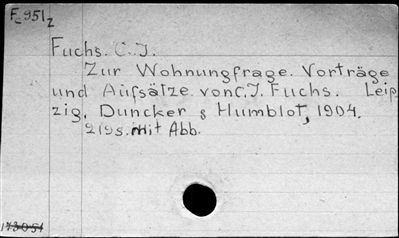 Fc951z
Fuchs. C. J.
Zur Wohnungfrage. Vorträge
und Aufsätze von C. J. Fuchs. Leip
zig, Duncker & Humblot, 1904.
219s. Mit Abb.
173051